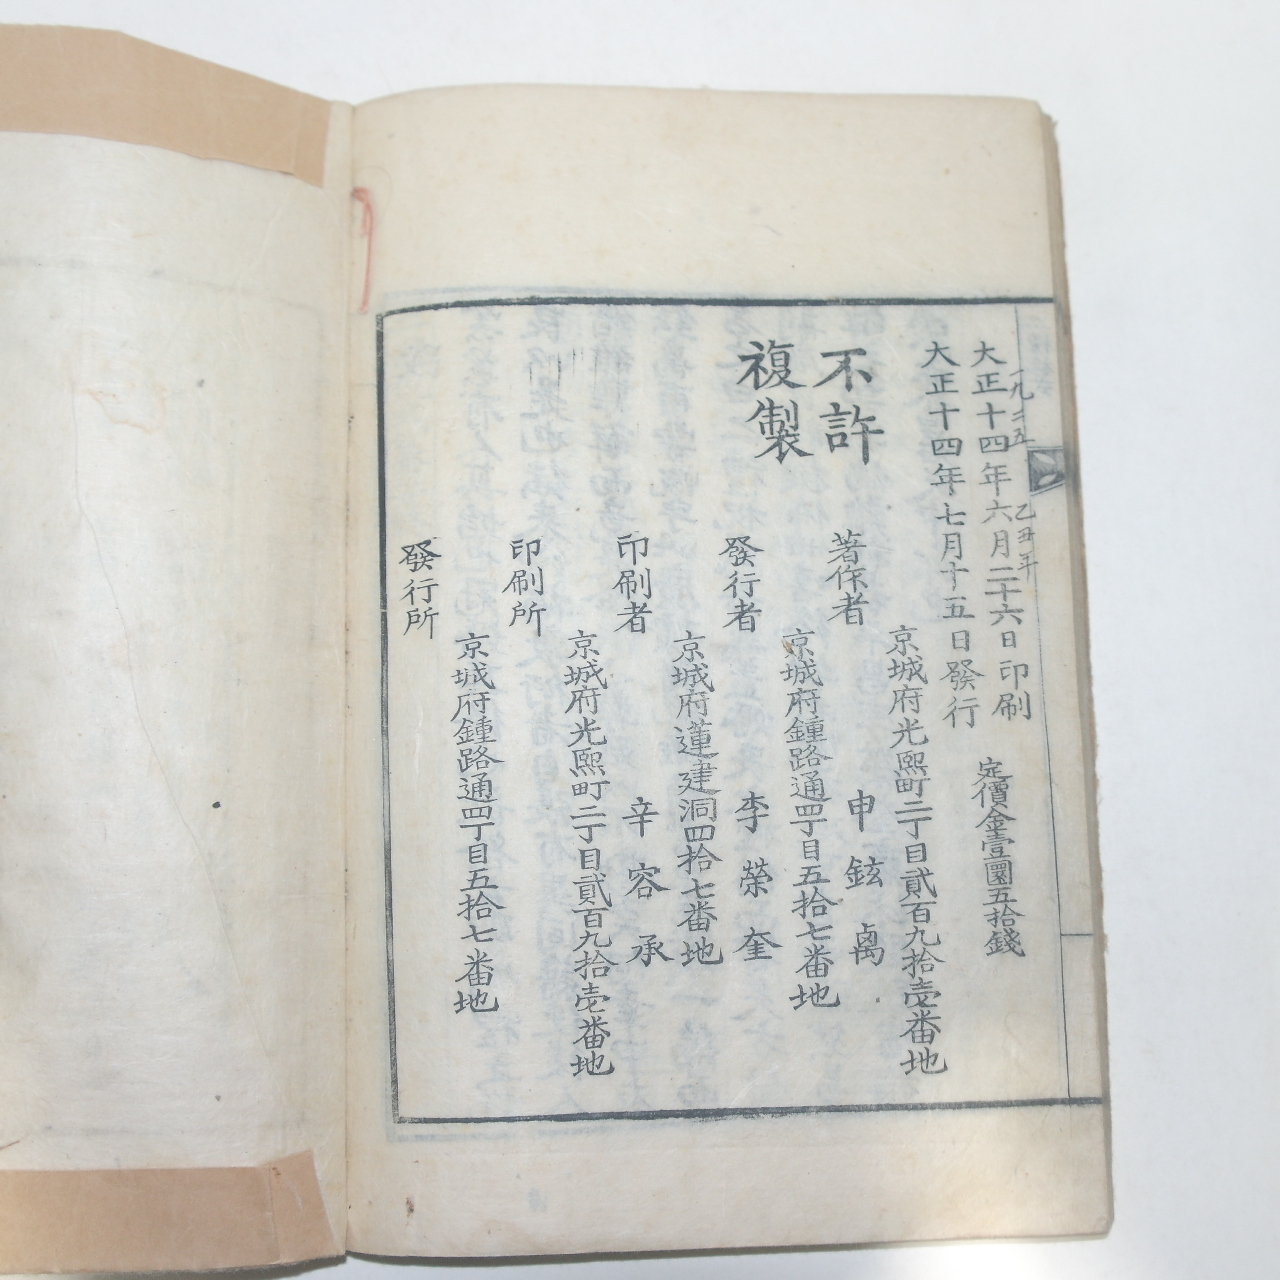 一九二五 乙丑年
大正十四年六月二十六日印刷
大正十四年七月十五日發行
定價金壹圜五拾錢
不許
複製
京城府光熙町二丁目貳百九拾壱番地
著作者 申鉉卨
京城府鍾路通四丁目五拾七番地
發行者 李榮奎
京城府蓮建洞四拾七番地
印刷者 辛容承
京城府光熙町二丁目貳百九拾壱番地
印刷所
京城府鍾路通四丁目五拾七番地
發行所